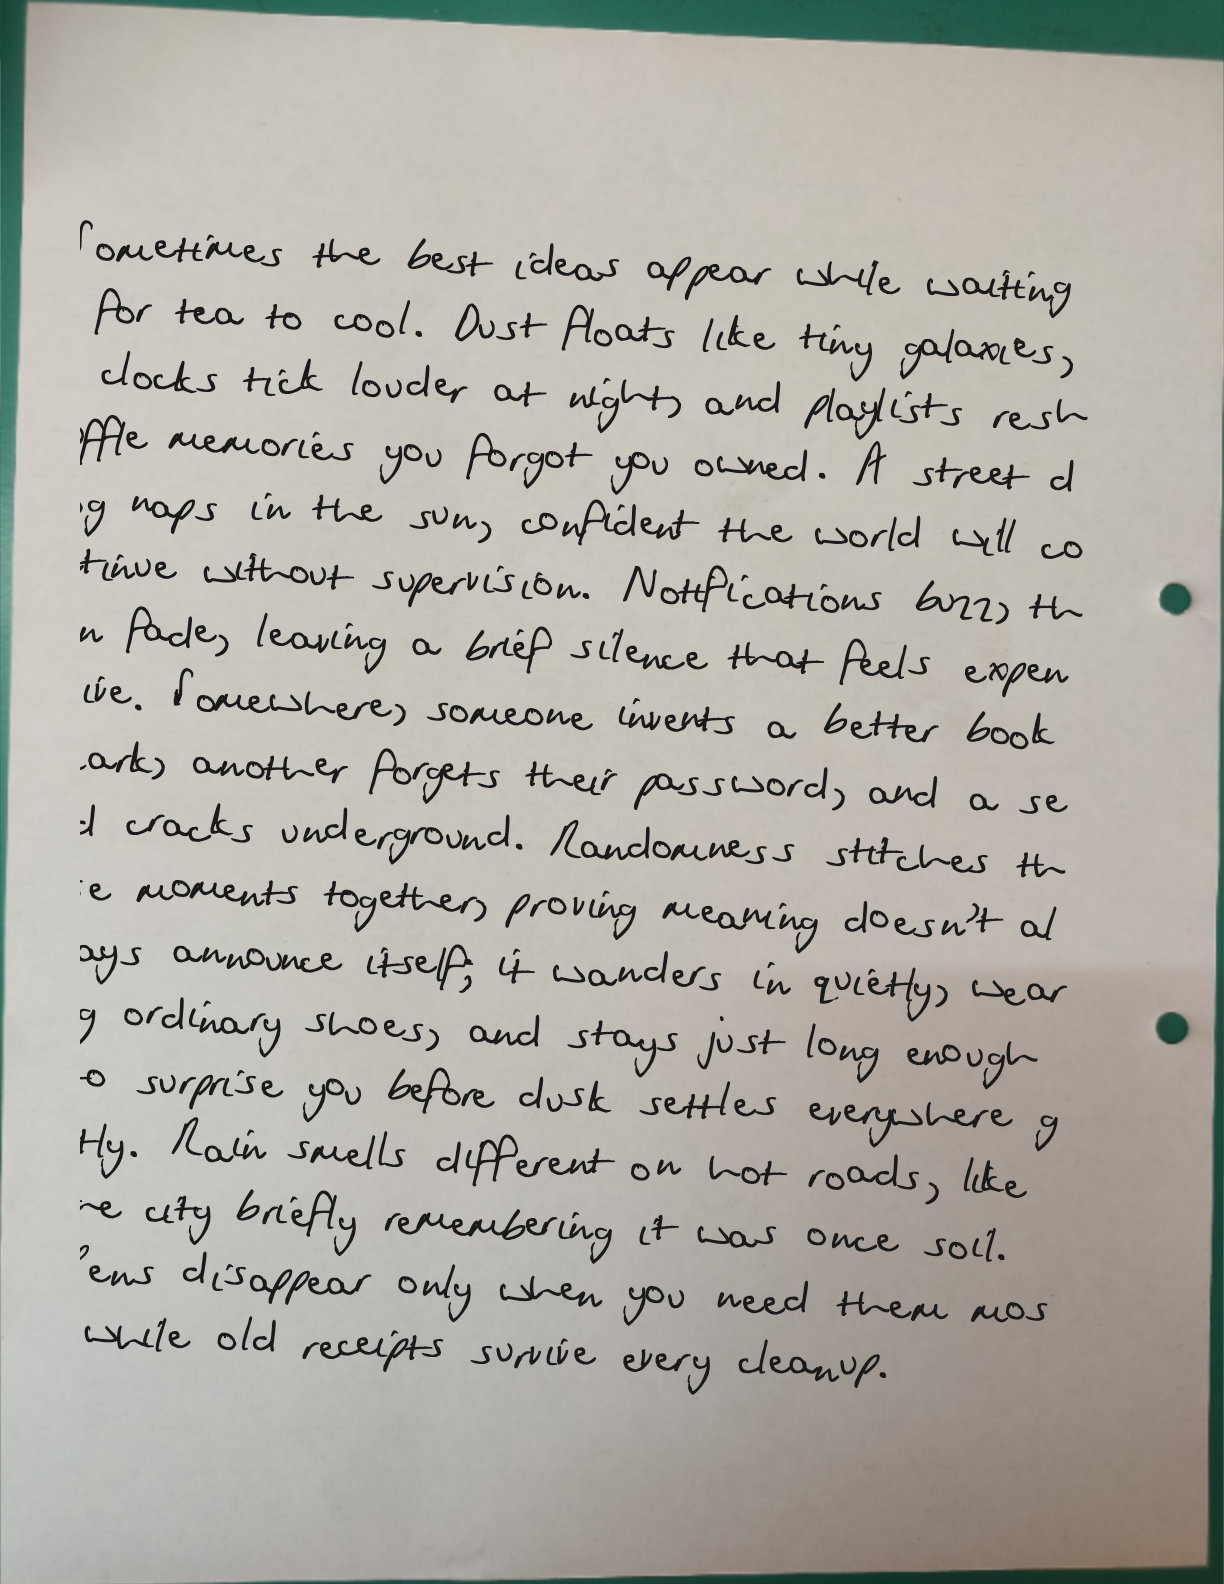 Sometimes the best ideas appear while waiting
for tea to cool. Dust floats like tiny galaxies,
clocks tick louder at night, and playlists resh
uffle memories you forgot you owned. A street d
og naps in the sun, confident the world will co
tinue without supervision. Notifications buzz, th
n fade, leaving a brief silence that feels expen
ive. Somewhere, someone invents a better book
ark, another forgets their password, and a se
d cracks underground. Randomness stitches th
e moments together, proving meaning doesn't al
ays announce itself; it wanders in quietly, wear
g ordinary shoes, and stays just long enough
o surprise you before dusk settles everywhere g
tly. Rain smells different on hot roads, like
e city briefly remembering it was once soil.
Pens disappear only when you need them mos
while old receipts survive every cleanup.